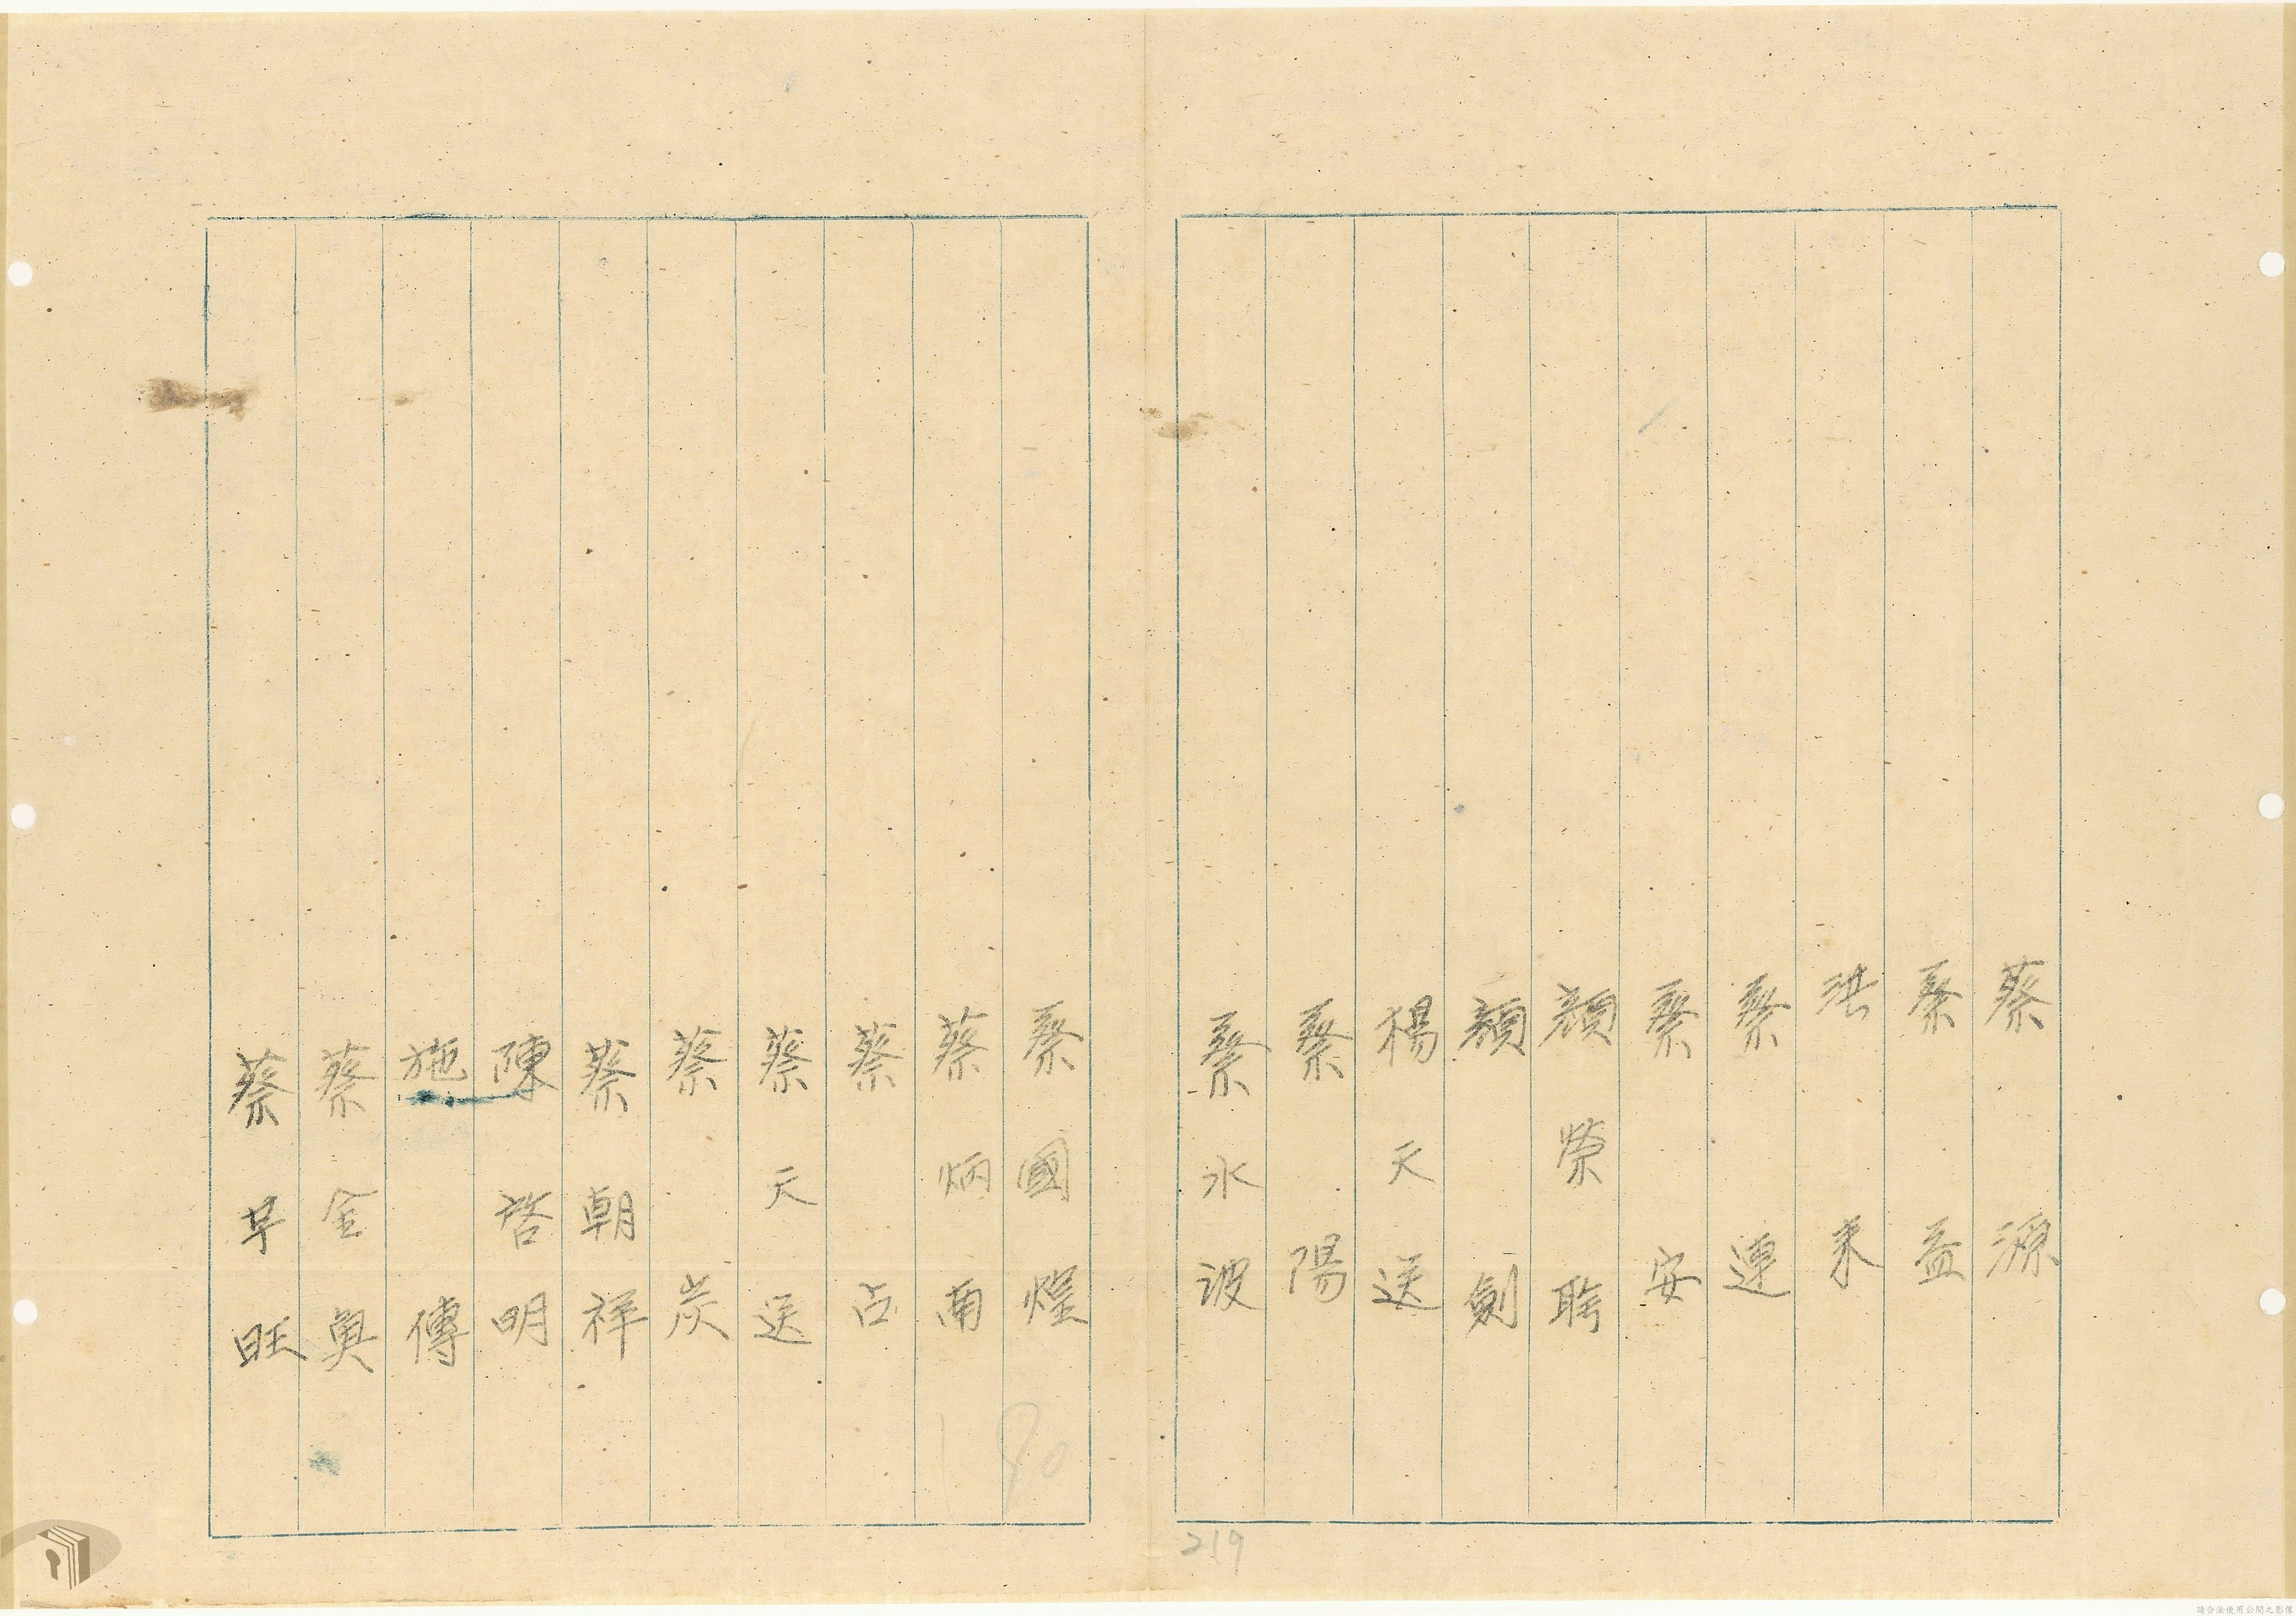 蔡源
蔡益
洪来
蔡連
蔡安
顏榮聆
顏劍
楊天送
蔡陽
蔡永波
219
蔡國煌
蔡炳南
蔡占
蔡天送
蔡炭
蔡朝祥
陳啓明
施傳
蔡金興
蔡早旺
180
請合法使用公開之影像